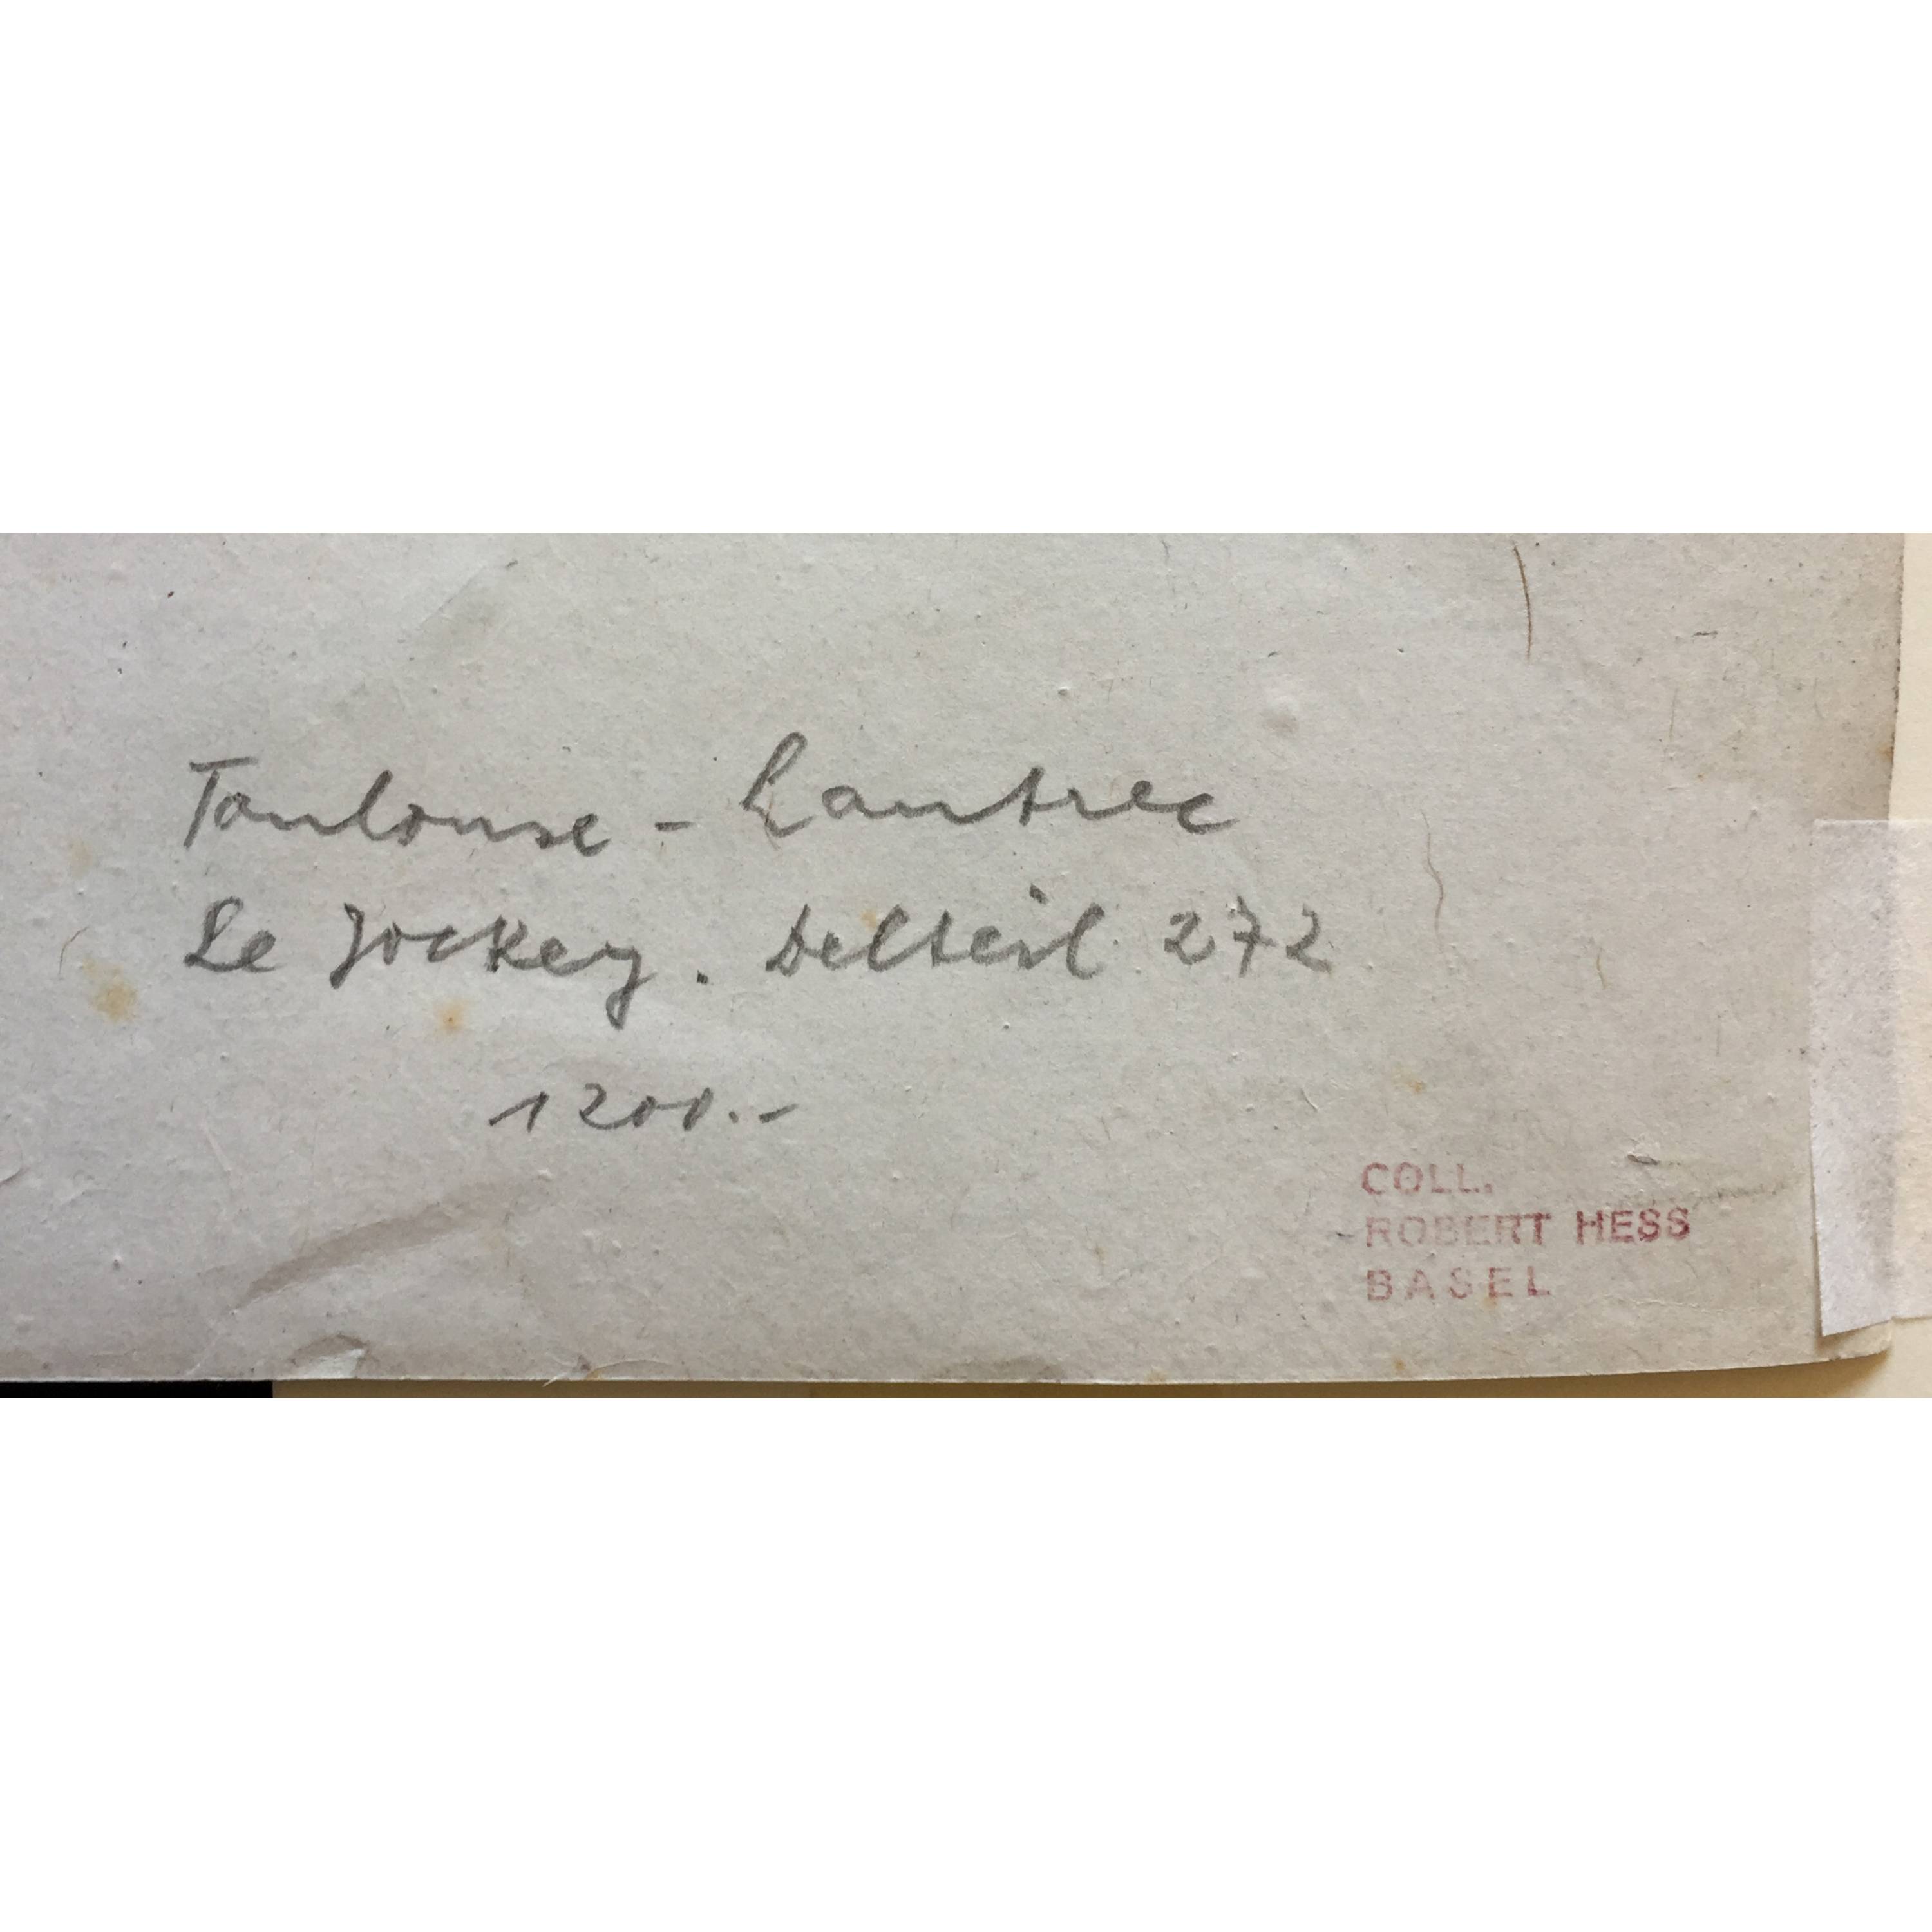 Toulouse - Lautrec
Le Jockey. Delteil 272
1200.-
COLL.
ROBERT HESS
BASEL